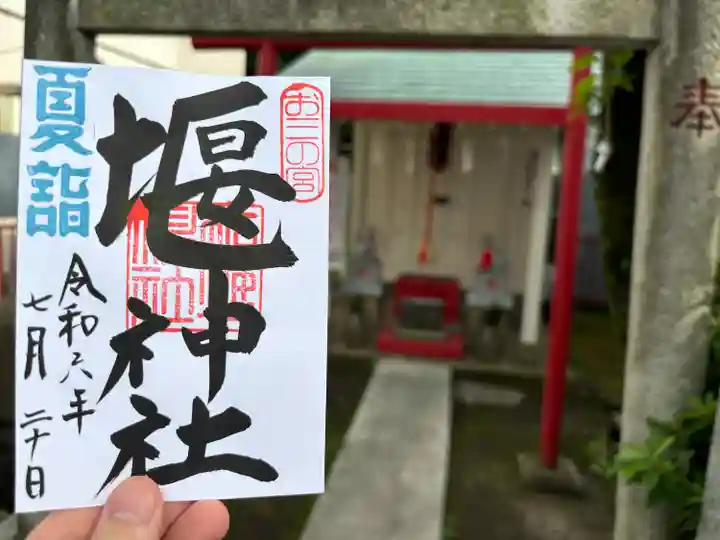 奉
お三の宮
堰神社
夏詣
令和六年
七月二十日